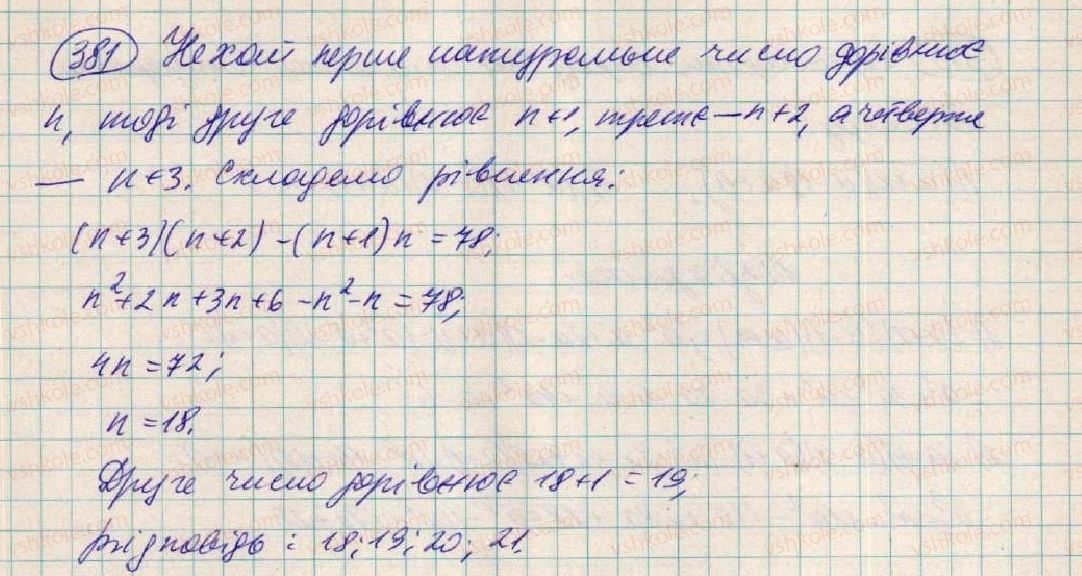 381 Нехай перше натуральне число дорівнює
n, тоді друге дорівнює n+1, третє — n+2, а четверте
— n+3. Складемо рівняння:
(n+3)(n+2)-(n+1)n=78;
n²+2n+3n+6-n²-n=78;
4n=72;
n=18.
Друге число дорівнює 18+1=19;
Відповідь: 18; 19; 20; 21.